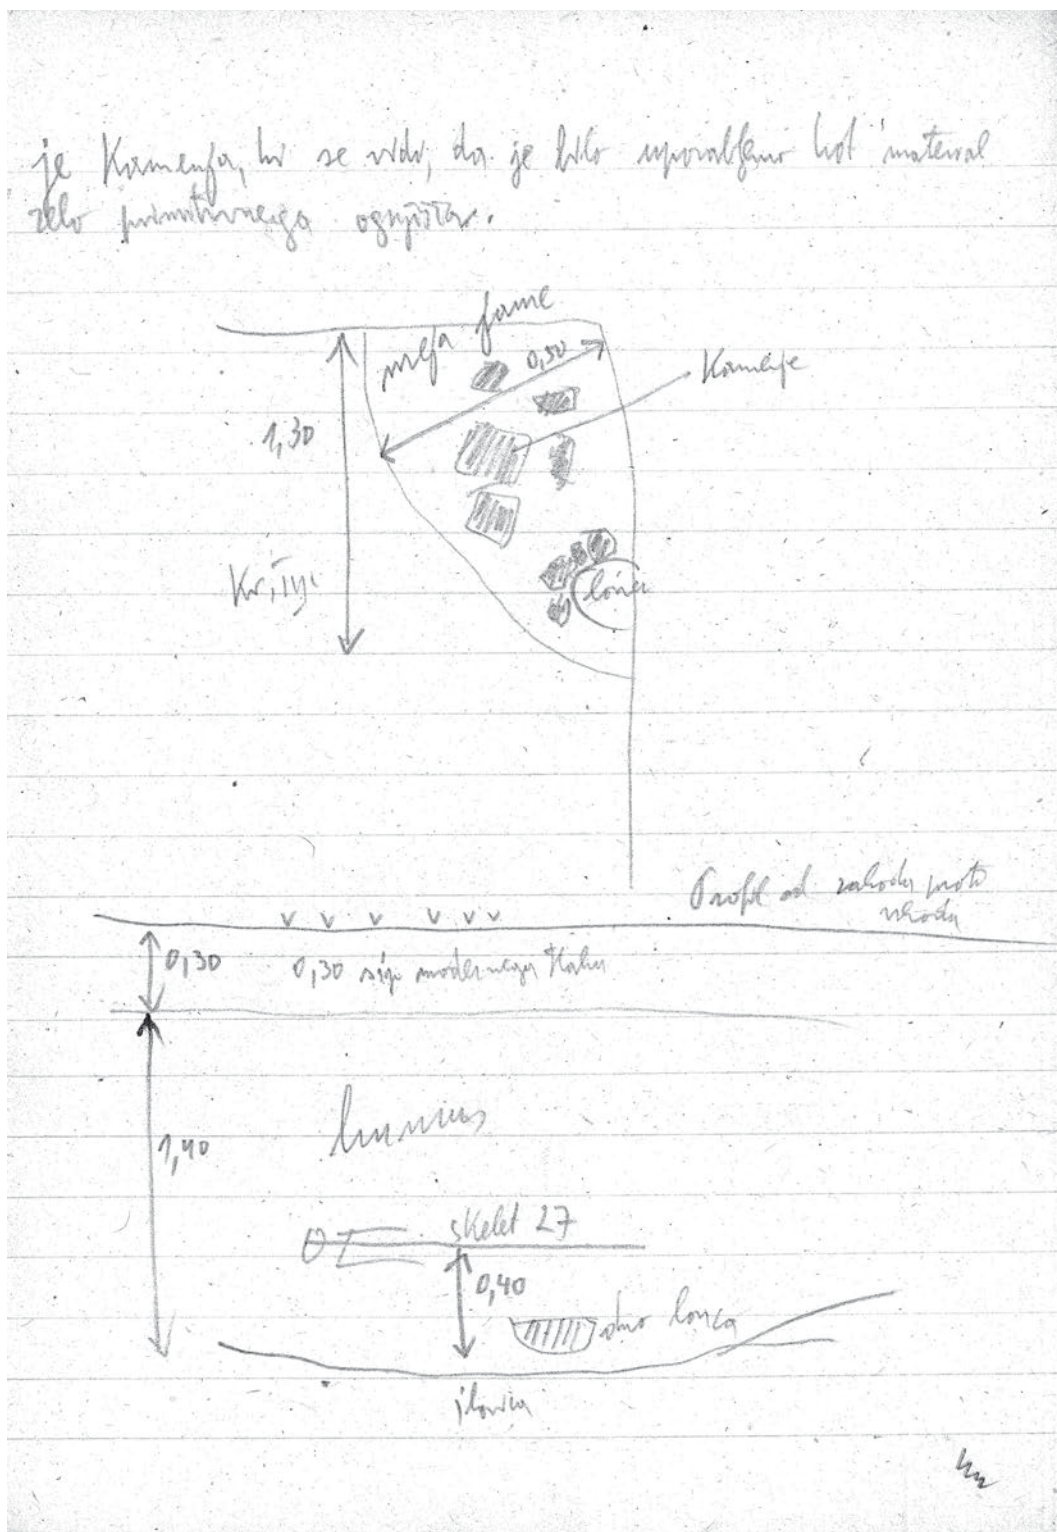 je Kamenja, ki se vidi, da je bilo uporabljeno kot material
zelo primitivnega ognjišča.
meja jame
0,50
Kamenje
1,30
lonec
Profil od zahoda proti
vzhodu
0,30
0,30 sipe modernega tlaka
humus
1,40
skelet 27
0,40
dno lonca
ilovica